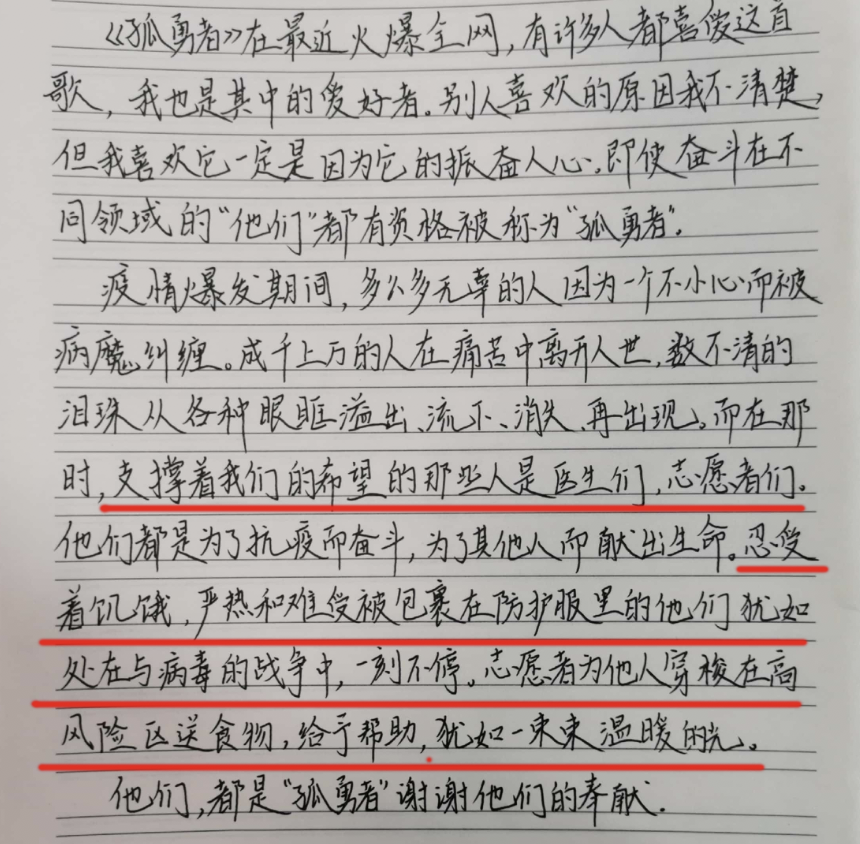 《孤勇者》在最近火爆全网，有许多人都喜爱这首
歌，我也是其中的爱好者。别人喜欢的原因我不清楚，
但我喜欢它一定是因为它的振奋人心。即使奋斗在不
同领域的“他们”都有资格被称为“孤勇者”.
疫情爆发期间，多么多无辜的人因为一个不小心而被
病魔纠缠。成千上万的人在痛苦中离开人世，数不清的
泪珠从各种眼眶溢出、流下、消失、再出现。而在那
时，支撑着我们的希望的那些人是医生们，志愿者们.
他们都是为了抗疫而奋斗，为了其他人而献出生命。忍受
着饥饿，严热和难受被包裹在防护服里的他们犹如
处在与病毒的战争中，一刻不停。志愿者为他人穿梭在高
风险区送食物，给予帮助，犹如一束束温暖的光。
他们，都是“孤勇者”谢谢他们的奉献.